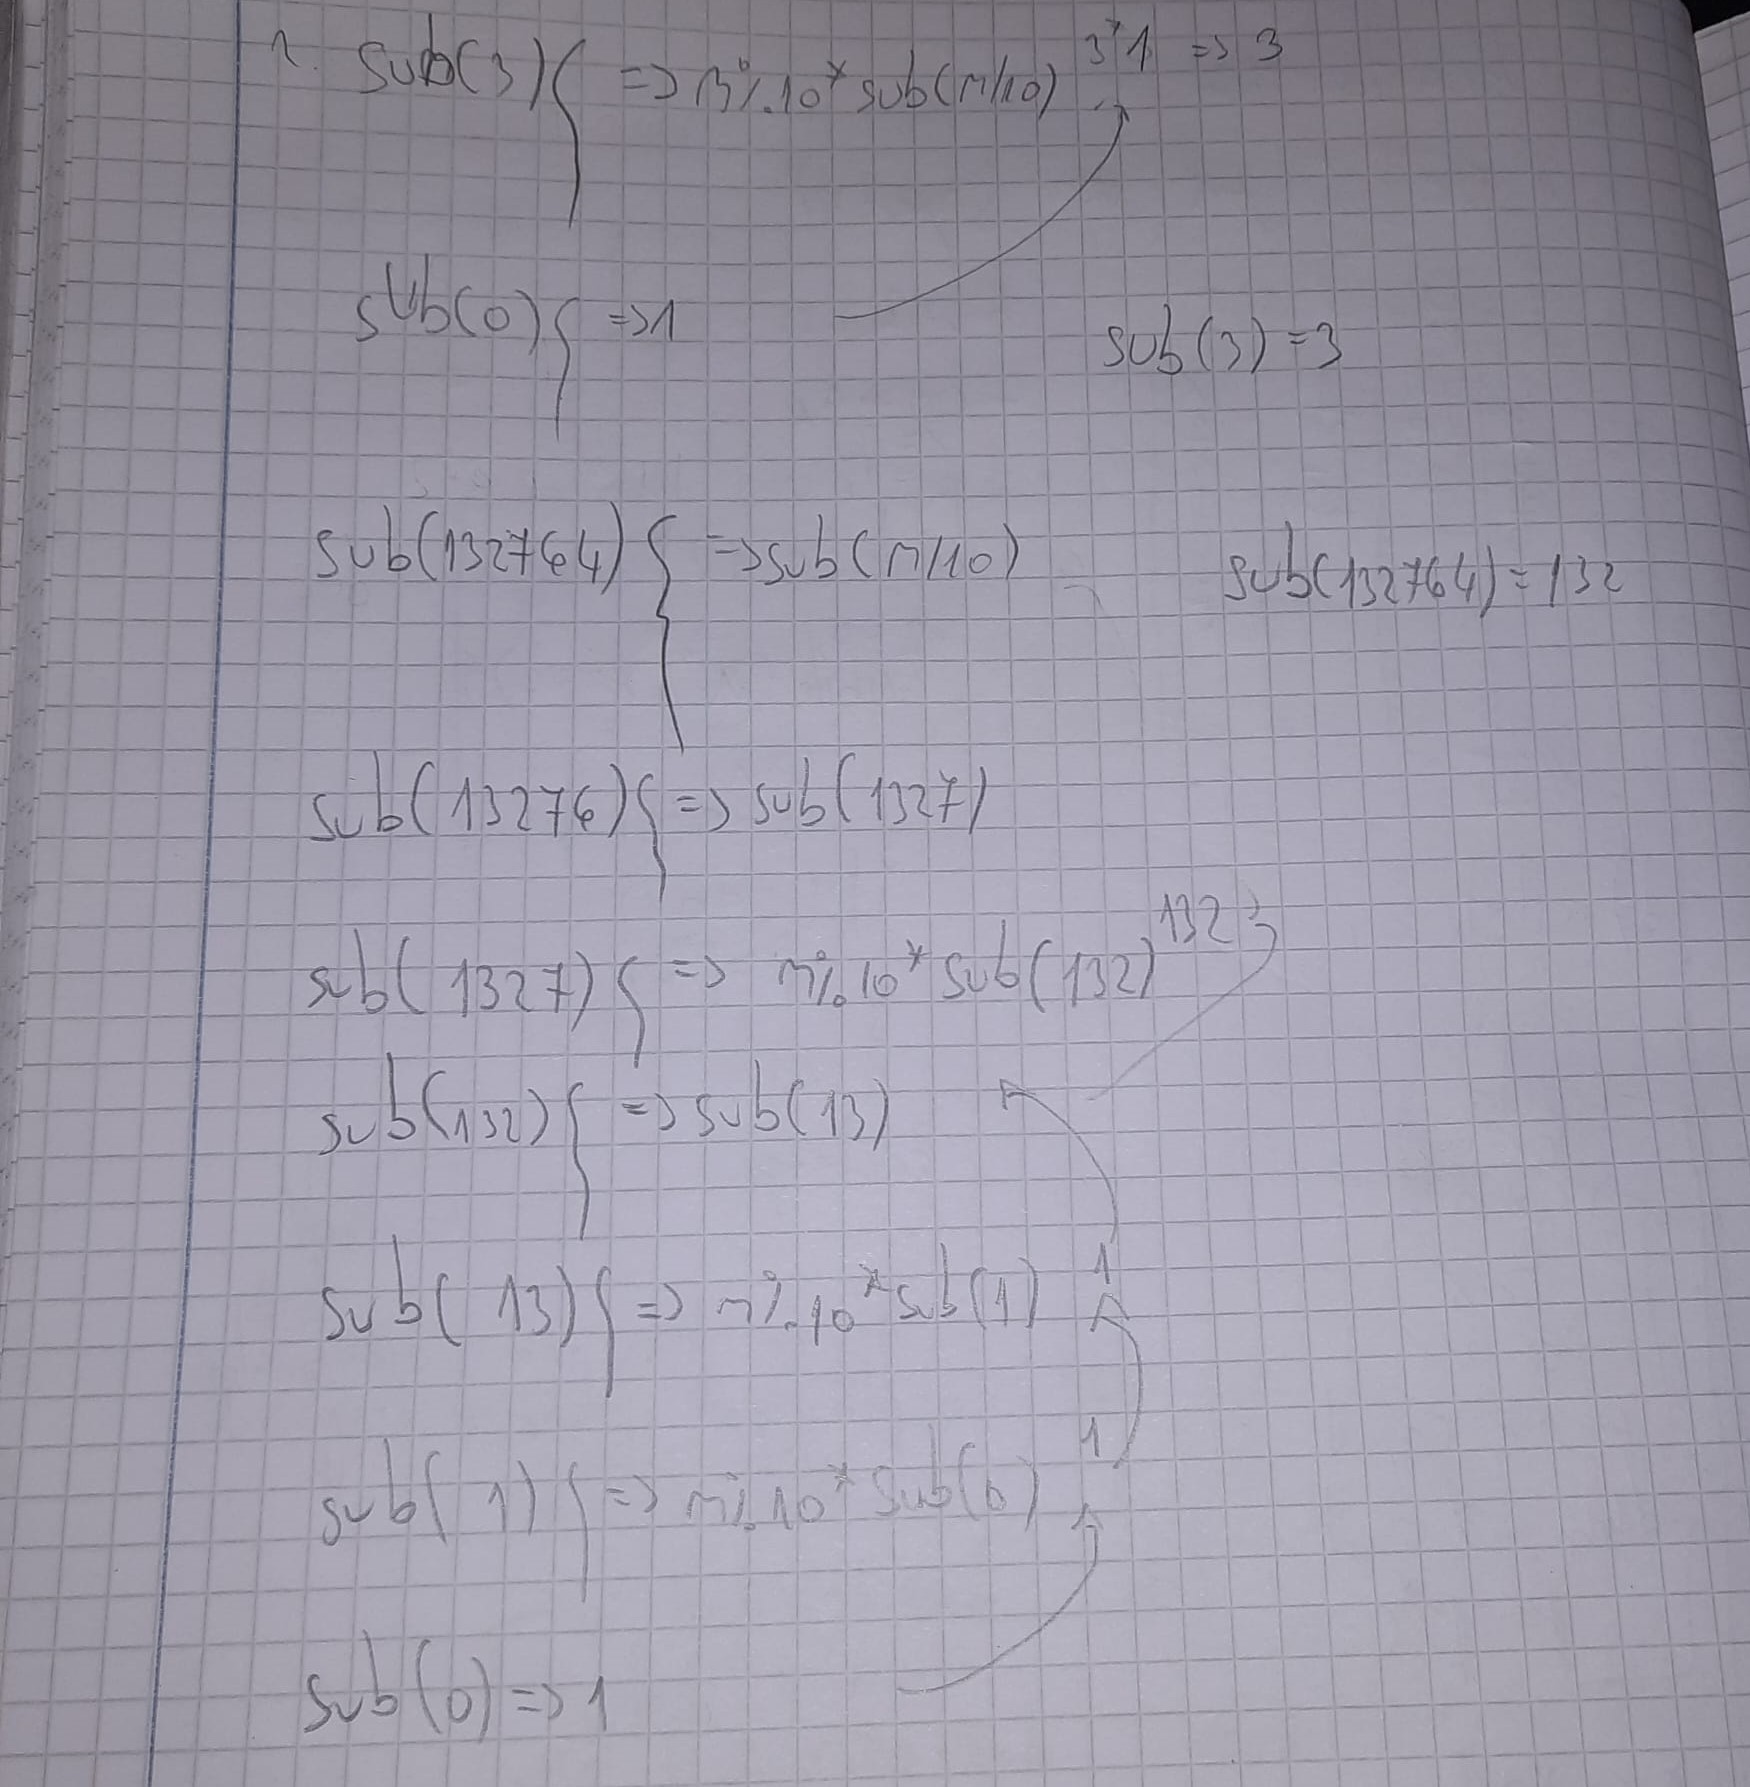 2. sub(3){ => n%10*sub(n/10) 3*1 => 3
sub(0){ =>1
sub(3)=3
sub(132764){ =>sub(n/10)
sub(132764)=132
sub(13276){ => sub(1327)
sub(1327){ => n%10*sub(132) 132
sub(132){ =>sub(13)
sub(13){ => n%10*sub(1) 1
sub(1){ => n%10*sub(0) 1
sub(0) =>1